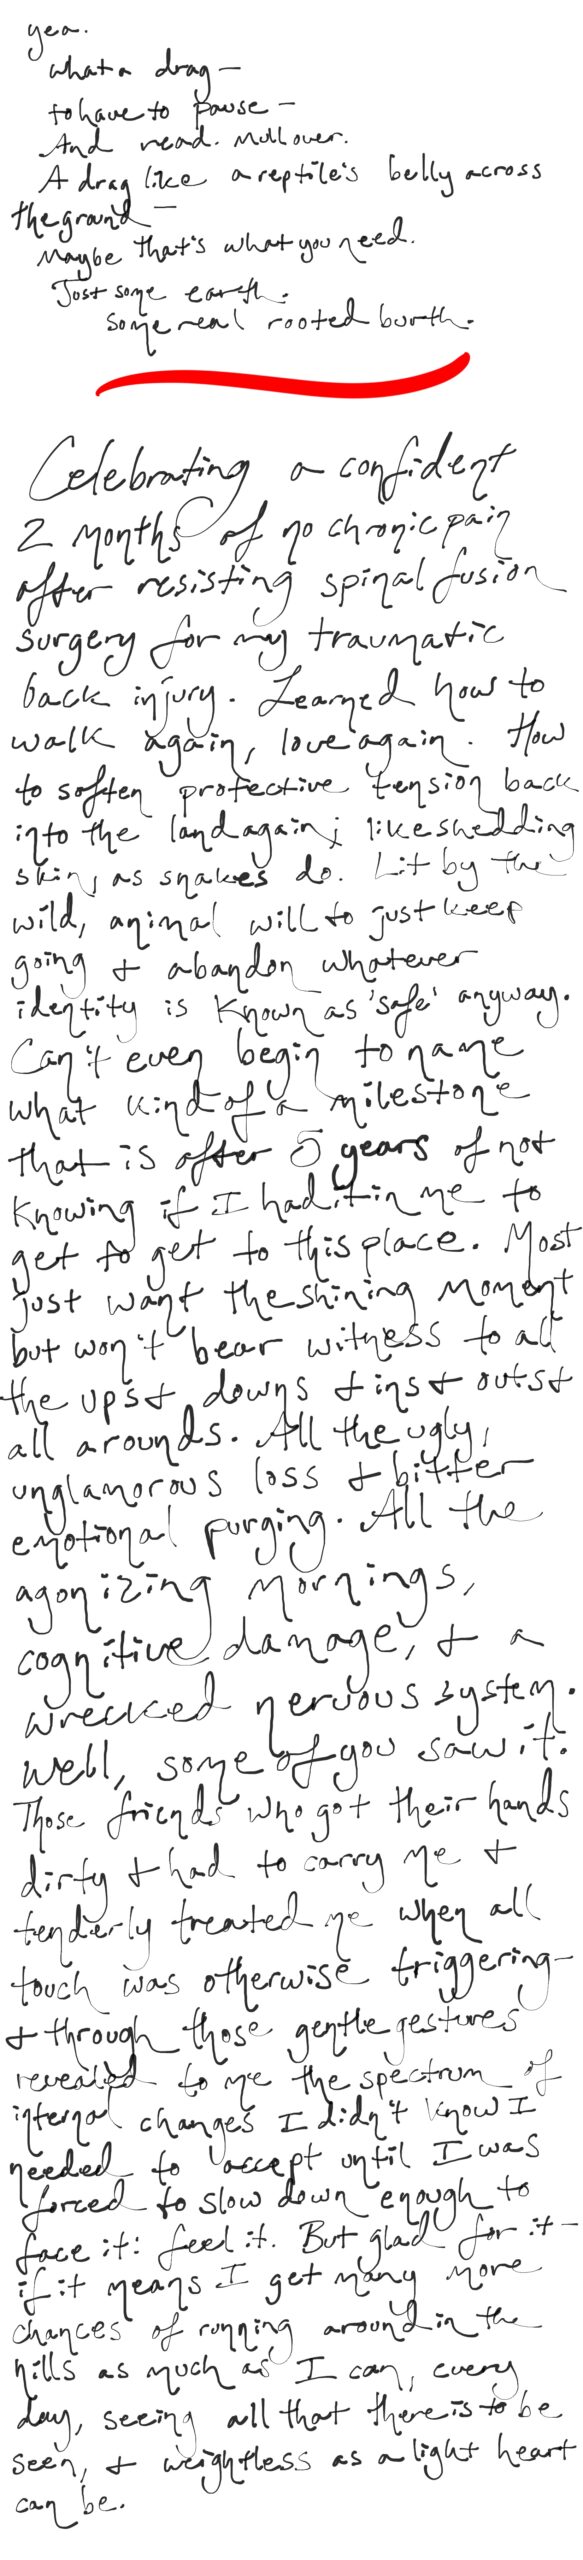 yea.
what a drag —
to have to pause —
And read. Mull over.
A drag like a reptile's belly across
the ground —
Maybe that's what you need.
Just some earth.
some real rooted burth.
Celebrating a confident
2 months of no chronic pain
after resisting spinal fusion
surgery for my traumatic
back injury. Learned how to
walk again, love again. How
to soften protective tension back
into the land again; like shedding
skin, as snakes do. Lit by the
wild, animal will to just keep
going & abandon whatever
identity is known as 'safe' anyway.
Can't even begin to name
what kind of a milestone
that is after 5 years of not
knowing if I had it in me to
get to get to this place. Most
just want the shining moment
but won't bear witness to all
the ups & downs & ins & outs &
all arounds. All the ugly,
unglamorous loss & bitter
emotional purging. All the
agonizing mornings,
cognitive damage, & a
wrecked nervous system.
Well, some of you saw it.
Those friends who got their hands
dirty & had to carry me &
tenderly treated me when all
touch was otherwise triggering—
& through those gentle gestures
revealed to me the spectrum of
internal changes I didn't know I
needed to accept until I was
forced to slow down enough to
face it: feel it. But glad for it —
if it means I get many more
chances of running around in the
hills as much as I can, every
day, seeing all that there is to be
seen, & weightless as a light heart
can be.